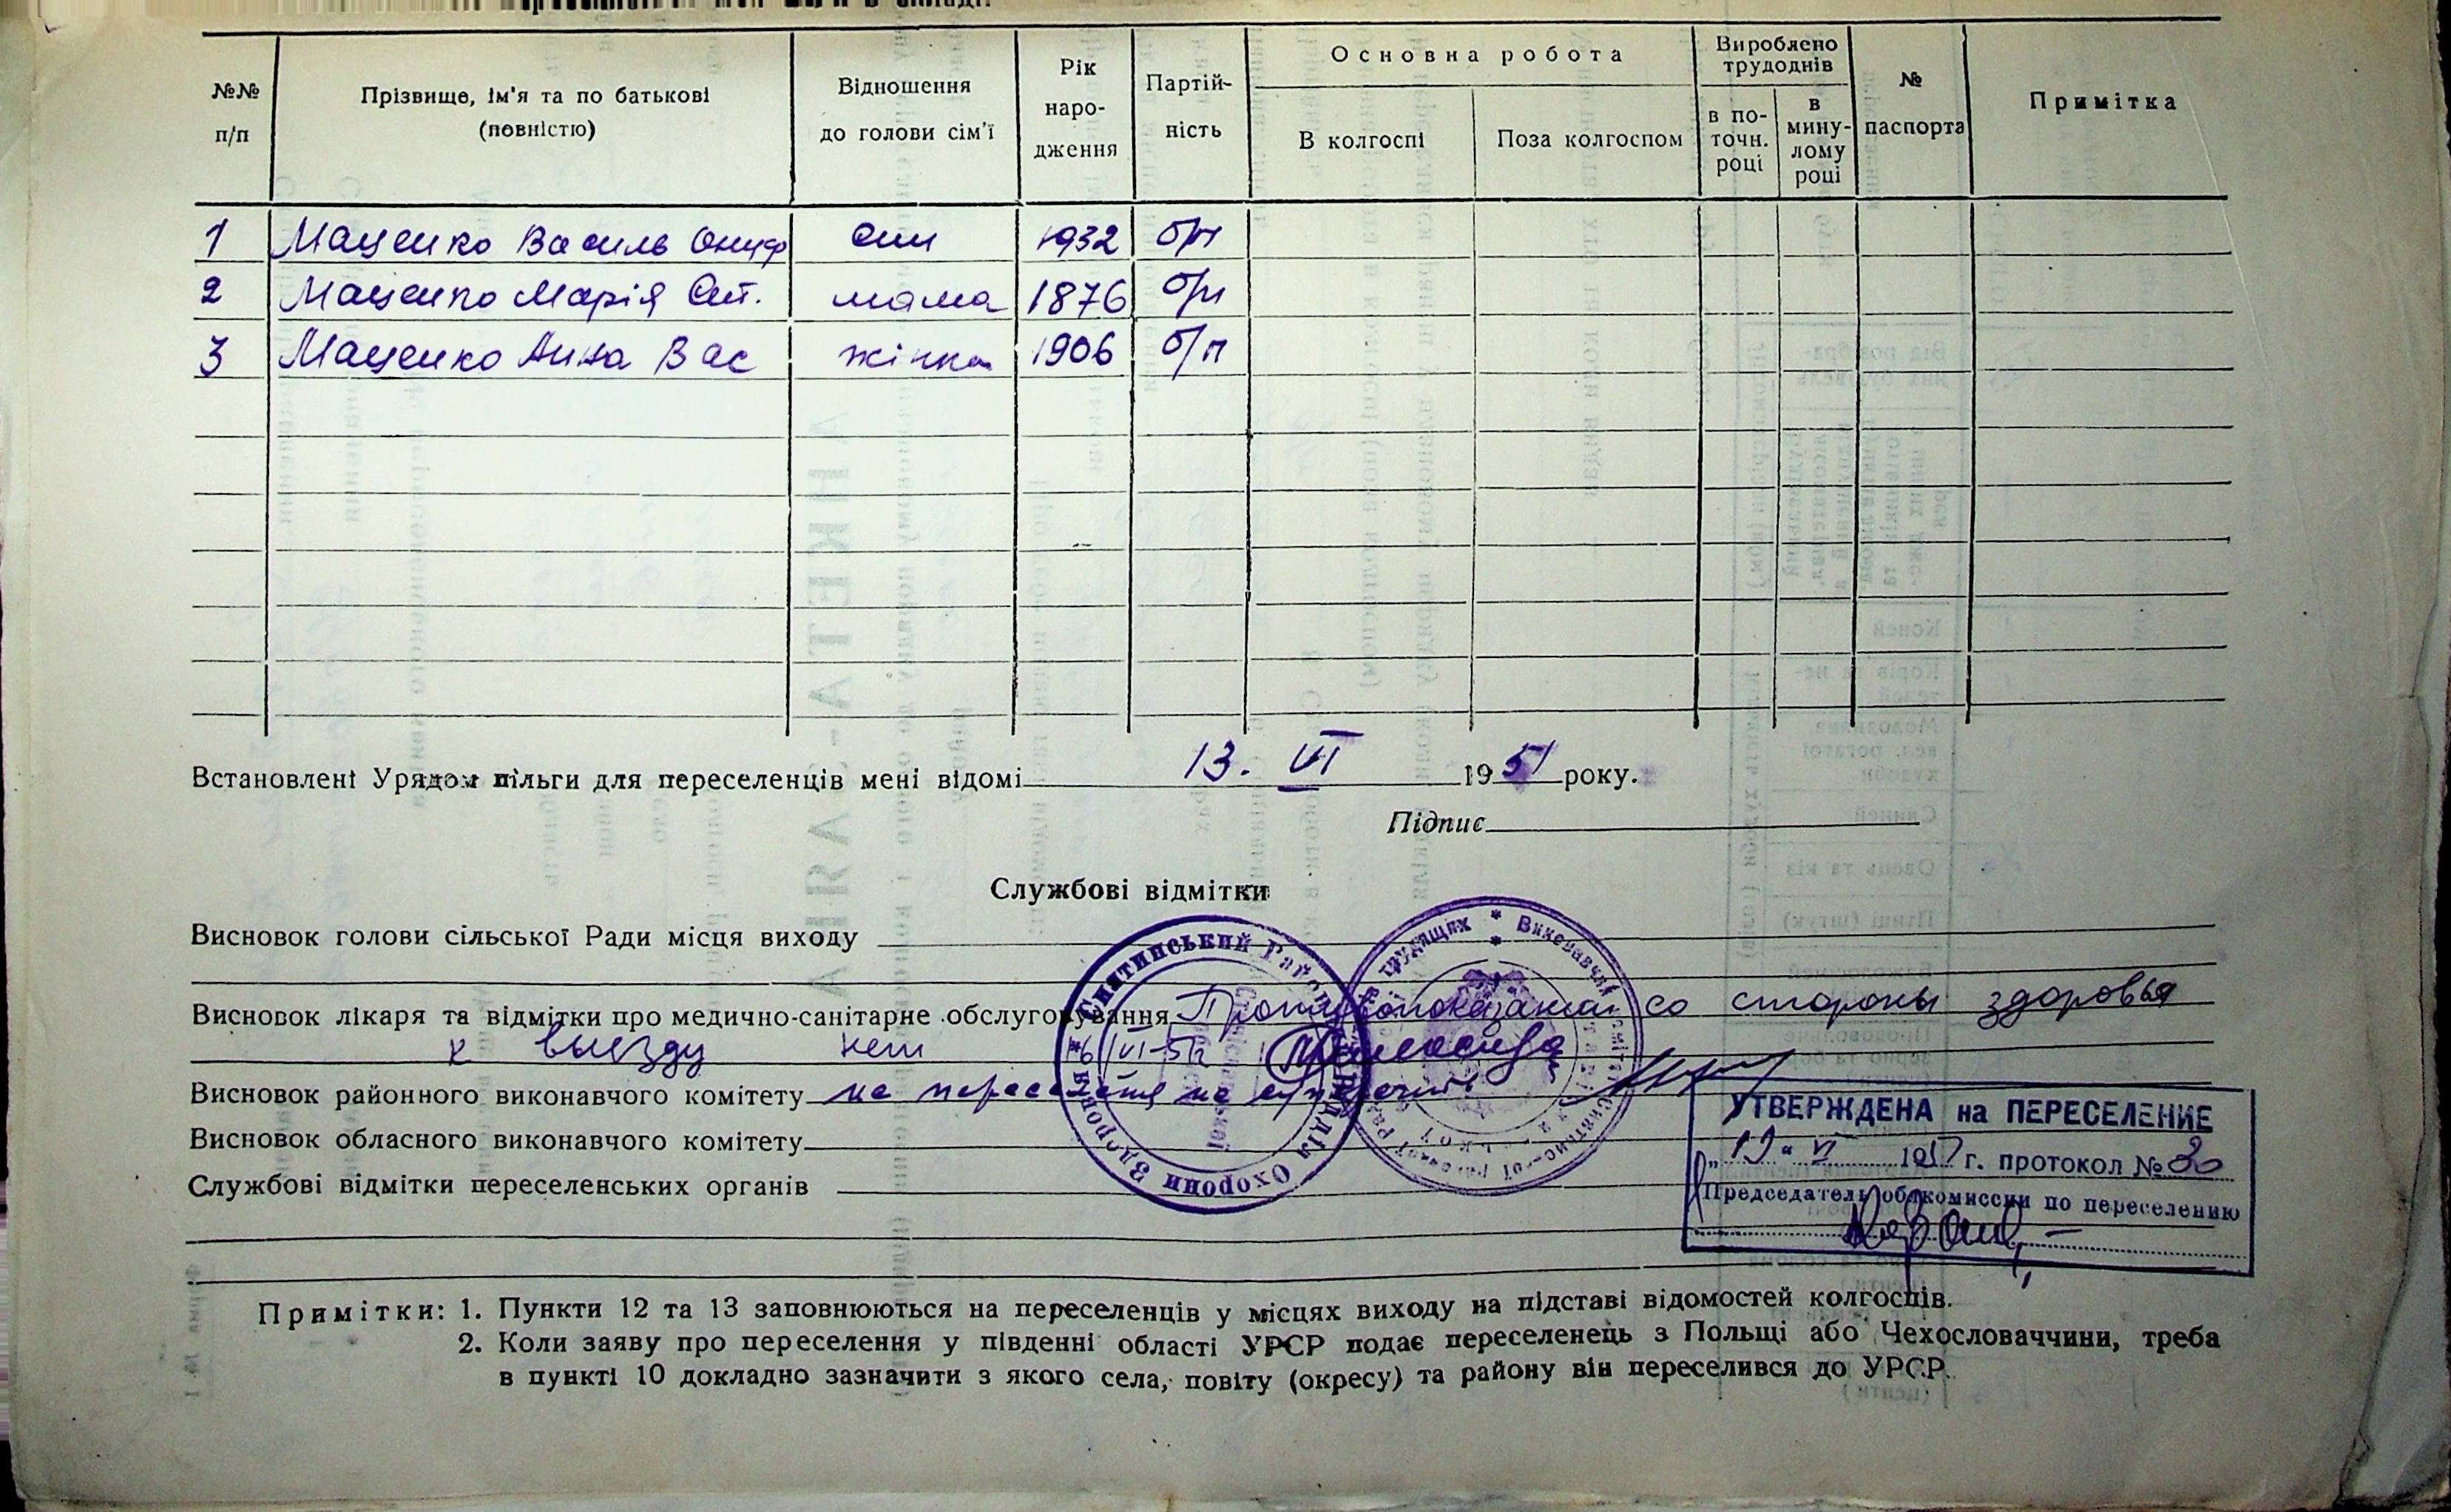 №№ п/п
Прізвище, ім'я та по батькові (повністю)
Відношення до голови сім'ї
Рік народження
Партій-ність
Основна робота
В колгоспі
Поза колгоспом
Вироблено трудоднів
в по-точн. році
в мину-лому році
№ паспорта
Примітка
1 Маценко Василь Онуф син 1932 б/п
2 Маценко Марія Ант. мама 1876 б/п
3 Маценко Анна Вас жінка 1906 б/п
Встановлені Урядом пільги для переселенців мені відомі 13. VI 1951 року.
Підпис
Службові відмітки
Висновок голови сільської Ради місця виходу
Висновок лікаря та відмітки про медично-санітарне обслуговування Противопоказании со стороны здоровья
к выезду нет
Висновок районного виконавчого комітету на переселення не
Висновок обласного виконавчого комітету
Службові відмітки переселенських органів
Снятинський Рай Відділ Охорони Здоров
трудящих * Виконавчий
УТВЕРЖДЕНА на ПЕРЕСЕЛЕНИЕ
"19" VI 1951 г. протокол № 20
Председатель облкомиссии по переселению
Примітки: 1. Пункти 12 та 13 заповнюються на переселенців у місцях виходу на підставі відомостей колгоспів.
2. Коли заяву про переселення у південні області УРСР подає переселенець з Польщі або Чехословаччини, треба
в пункті 10 докладно зазначити з якого села, повіту (окресу) та району він переселився до УРСР.